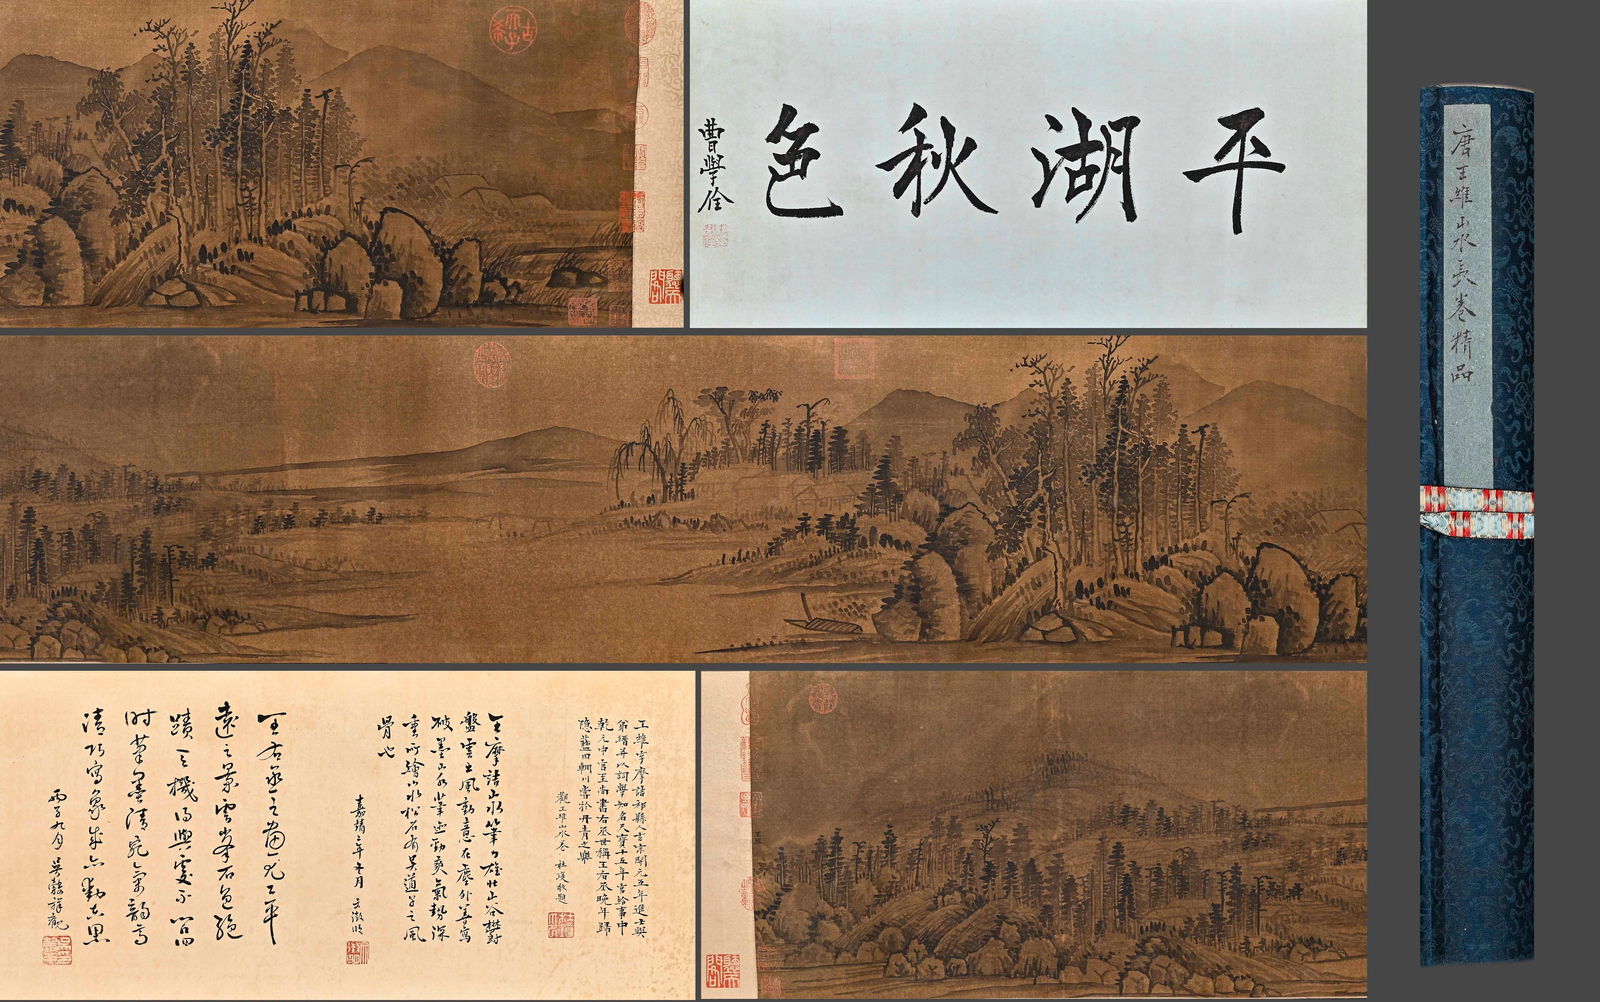 平湖秋色
曹學佺
唐王維山水長卷精品
古稀天子
王維字摩詰祁縣人玄宗開元五年進士與
弟縉并以詞學知名天寶十五年官給事中
乾元中官至尚書右丞世稱王右丞晚年歸
隱藍田輞川嘗於丹青之興
觀王維山水卷 杜瓊敬題
王摩詰山水筆力雄壯山谷欝
盤雲水風動意在塵外善寫
破墨山水筆迹勁爽氣勢深
重所繪山水松石有吳道子之風
骨也
嘉靖三年十月 文徵明
王右丞之畫尤工平
遠之景雲峯石色絕
蹟天機
時筆墨清宛氣韻高
清巧寫象
丙子九月 吳榖祥觀